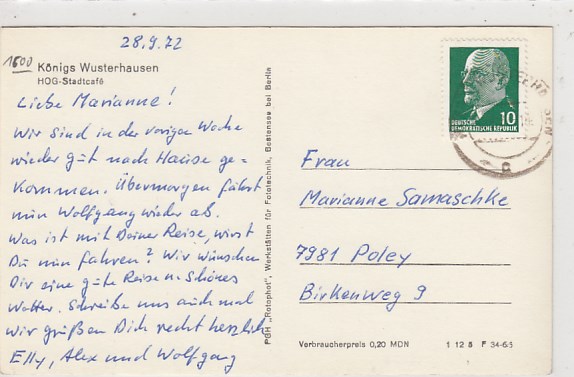 28.9.72
1600
Königs Wusterhausen
HOG-Stadtcafé
Liebe Marianne!
Wir sind in der vorigen Woche
wieder gut nach Hause ge-
kommen. Übermorgen fährt
nun Wolfgang wieder ab.
Was ist mit Deiner Reise, wirst
Du nun fahren? Wir wünschen
Dir eine gute Reise u. Schönes
Wetter. Schreibe uns auch mal
wir grüßen Dich recht herzlich
Elly, Alex und Wolfgang
PGH „Rotophot", Werkstätten für Fototechnik, Bestensee bei Berlin
10
DEUTSCHE
DEMOKRATISCHE REPUBLIK
Frau
Marianne Samaschke
7981 Poley
Birkenweg 9
Verbraucherpreis 0,20 MDN
1 12 8 F 34-65